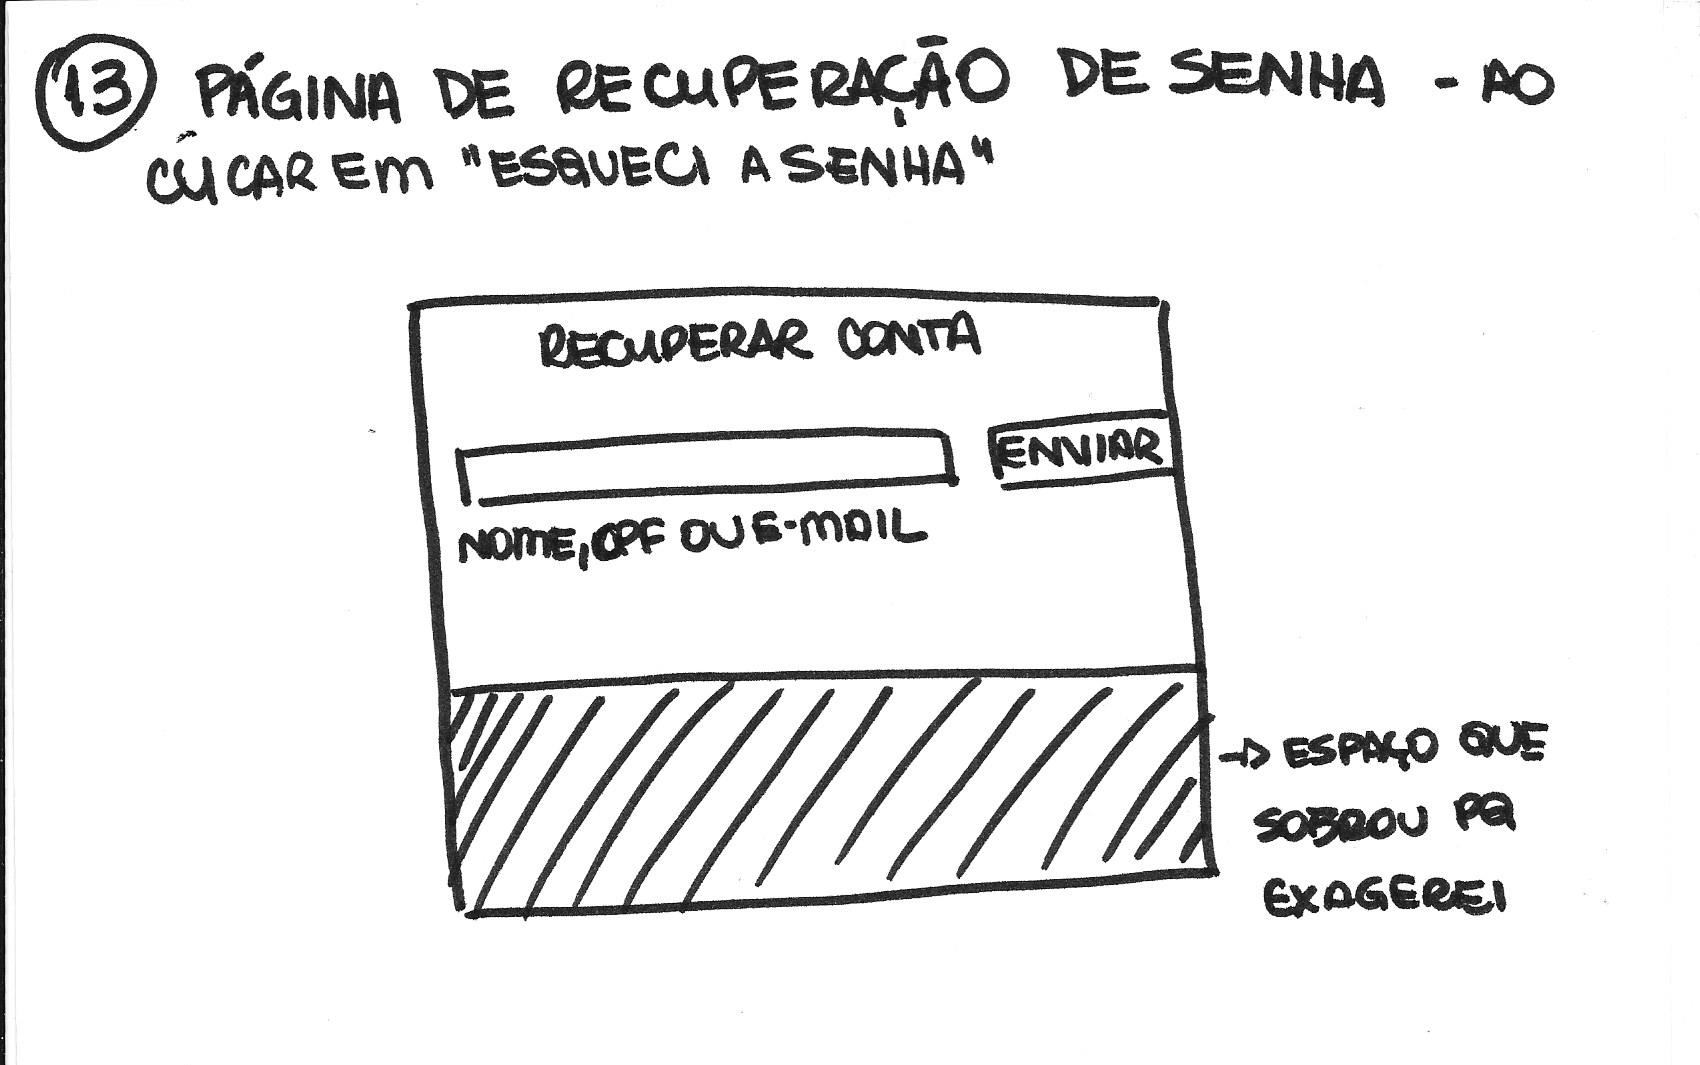 13 PÁGINA DE RECUPERAÇÃO DE SENHA - AO
CLICAR EM "ESQUECI A SENHA"
RECUPERAR CONTA
ENVIAR
NOME, CPF OU E-MAIL
→ ESPAÇO QUE
SOBROU PQ
EXAGEREI